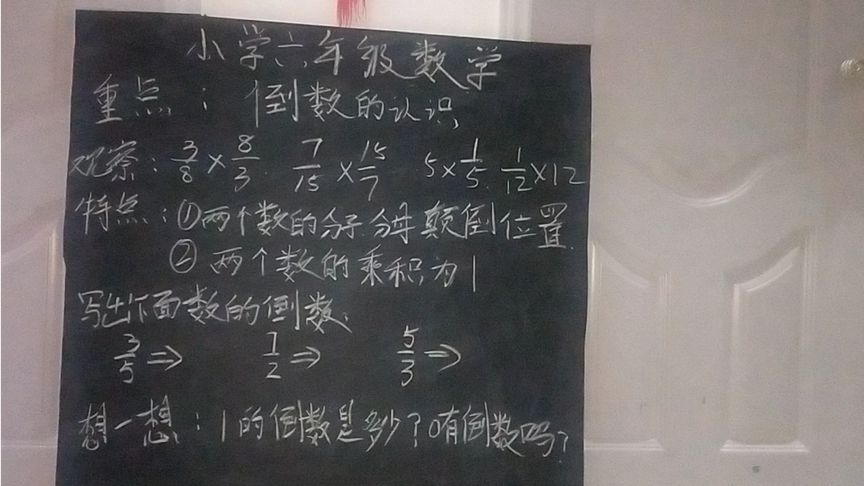 小学六年级数学
重点：倒数的认识
观察：3/8×8/3 7/15×15/7 5×1/5 1/12×12
特点：①两个数的分子分母颠倒位置
②两个数的乘积为1
写出下面数的倒数：
3/5⇒ 1/2⇒ 5/3⇒
想一想：1的倒数是多少？0有倒数吗？